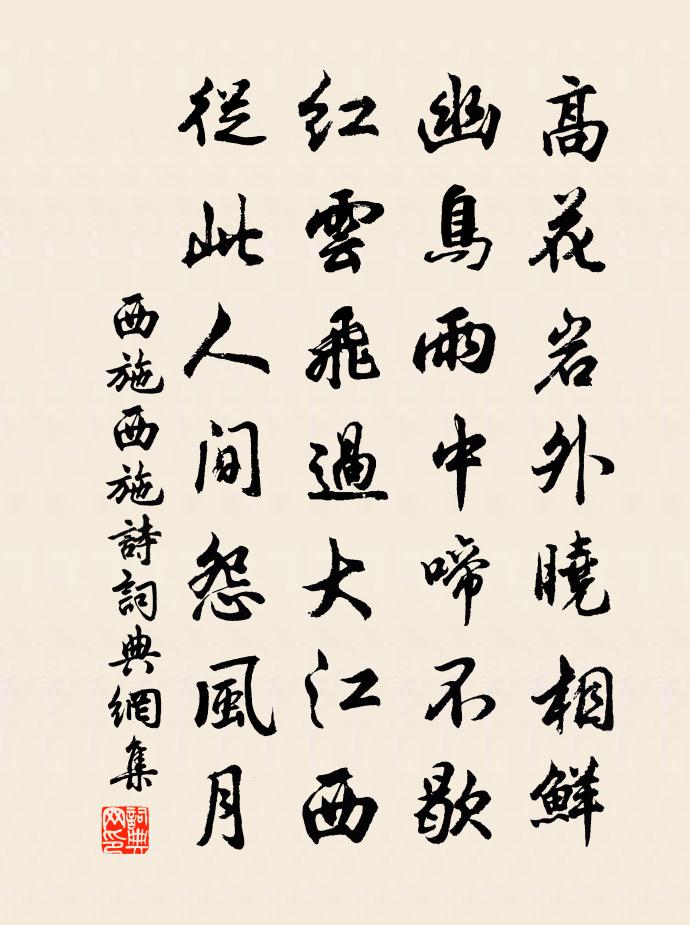 高花岩外曉相鮮
幽鳥雨中啼不歇
紅雲飛過大江西
從此人間怨風月
西施西施詩詞典網集
詞典
网印